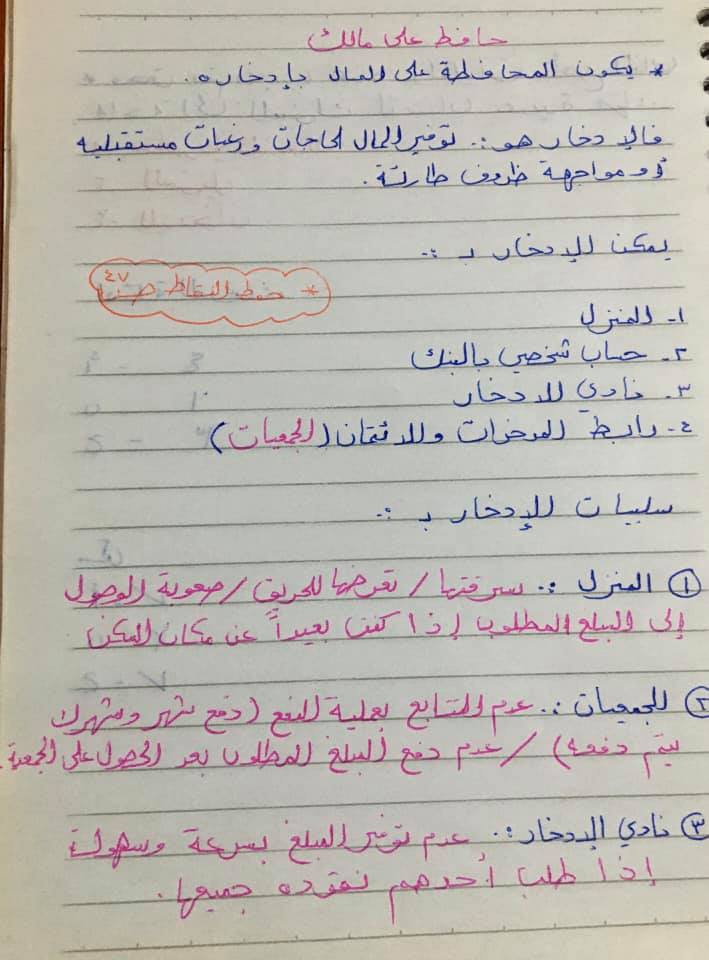 حافظ على مالك
* يكون المحافظة على المال بإدخاره.
فالإدخار هو :. توفير المال لحاجات ورغبات مستقبلية
أو مواجهة ظروف طارئة.
يمكن للإدخار بـ :.
* حفظ النقاط ص ٤٧
١- المنزل
٢- حساب شخصي بالبنك
٣- نادي للادخار
٤- رابط المدخرات وللائتمان (الجمعيات)
سلبيات للإدخار بـ :.
① المنزل :. سرقتها / تعرضها للحريق / صعوبة الوصول
إلى المبلغ المطلوب إذا كنت بعيداً عن مكان السكن
② للجمعيات :. عدم التتابع بعملية الدفع (دفع شهر وشهر لا
يتم دفعه) / عدم دفع المبلغ المطلوب بعد الحصول على الجمعية.
③ نادي الإدخار :. عدم توفير المبلغ بسرعة وسهولة
إذا طلب أحدهم نقوده جميعها.